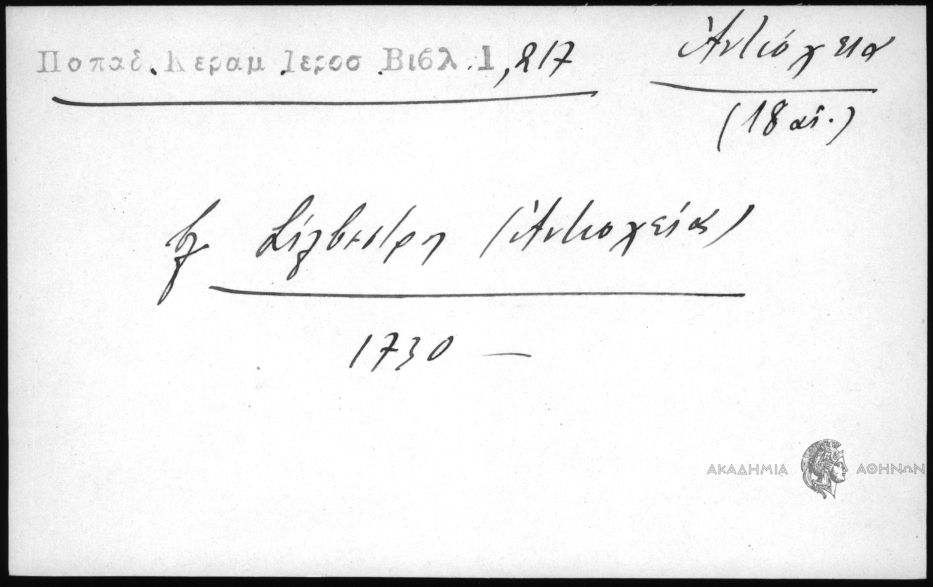 Παπαδ. Κεραμ Ιεροσ Βιβλ. 1, 217 Ἀντιόχεια
(18 αἰ.)
βλ Σίλβεστρη (Ἀντιοχείας)
1730 —
ΑΚΑΔΗΜΙΑ ΑΘΗΝΩΝ